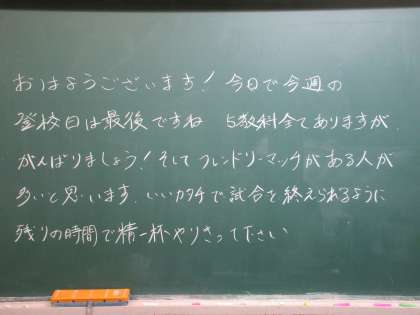 おはようございます！今日で今週の
登校日は最後ですね 5教科全てありますが、
がんばりましょう！そしてフレンドリーマッチがある人が
多いと思います。いいカタチで試合を終えられるように
残りの時間で精一杯やりきって下さい